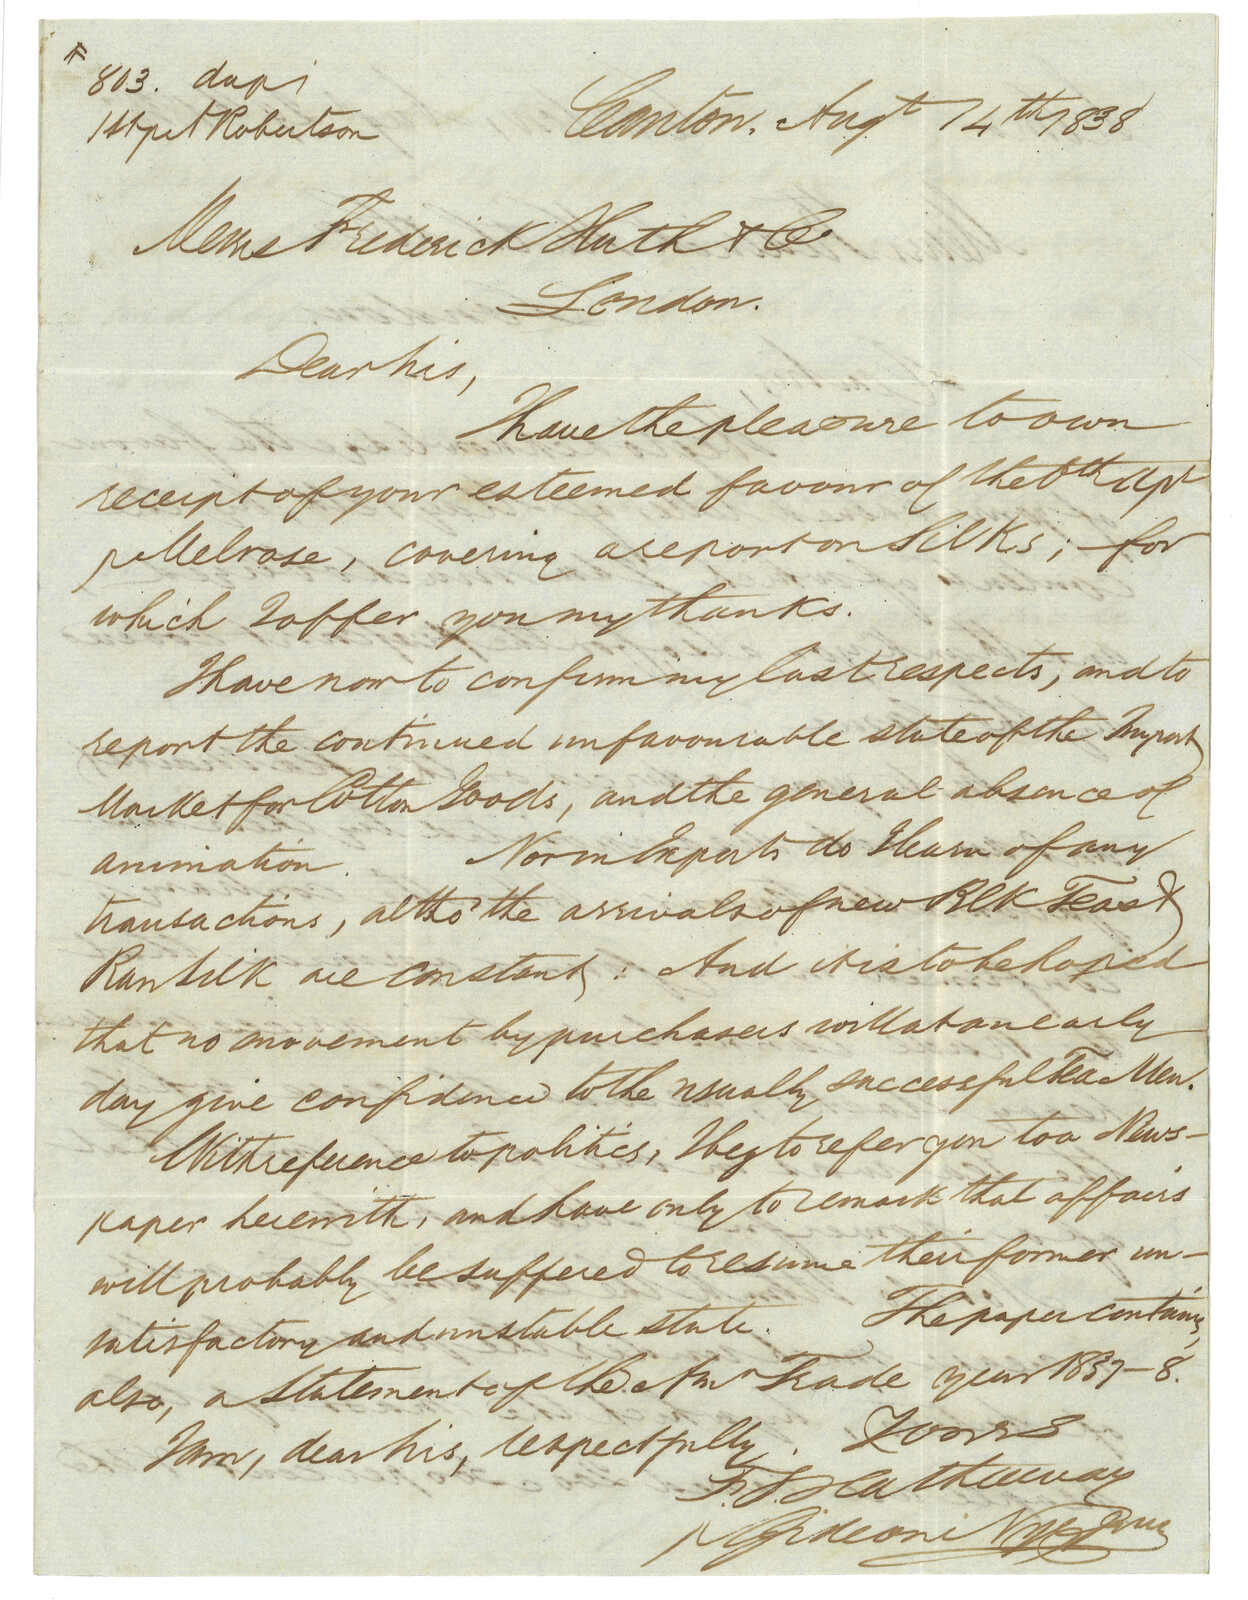 # 803. dup
1st pr Robertson
Canton, Augt 14th 1838
Messrs Frederick Huth & Co
London.
Dear Sirs,
I have the pleasure to own
receipt of your esteemed favour of the 6th Apl
p Melrose, covering a report on Silks; for
which I offer you my thanks.
I have now to confirm my last respects, and to
report the continued unfavourable state of the Import
Market for Cotton Goods, and the general absence of
animation. Nor in Exports do I learn of any
transactions, altho' the arrivals of new Blk Teas &
Raw Silk are constant: And it is to be hoped
that no movement by purchasers will at an early
day give confidence to the usually successful Tea Men.
With reference to politics, I beg to refer you to a News-
paper herewith, and have only to remark that affairs
will probably be suffered to resume their former un-
satisfactory and unstable state. The paper contains,
also, a Statement of the Amn Trade year 1837-8.
I am, dear Sirs, respectfully. Yours
F. S. Hathaway
p Gideon Nye Jr